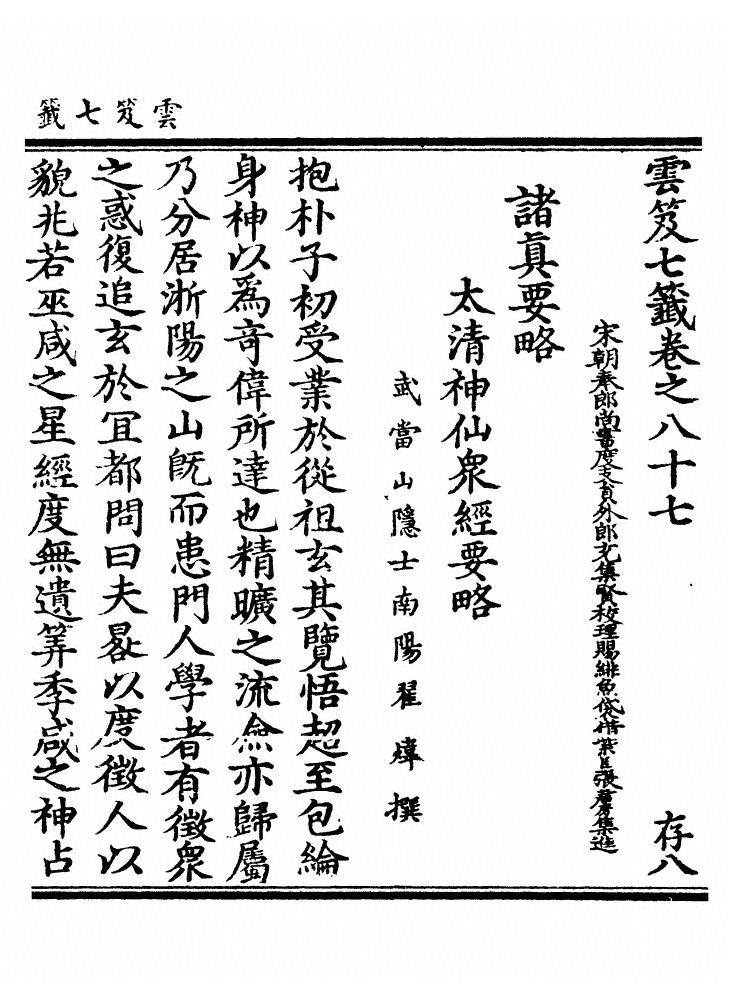 雲笈七籤
雲笈七籤卷之八十七 存八
宋朝奉郎尚書度支員外郎充集賢校理賜緋魚袋借紫臣張君房集進
諸眞要略
太清神仙衆經要略
武當山隱士南陽翟煒撰
抱朴子初受業於從祖玄其覽悟超至包綸
身神以爲竒偉所達也精曠之流僉亦歸屬
乃分居淅陽之山旣而患門人學者有徵衆
之惑復追玄於冝都問曰夫晷以度徵人以
貌兆若巫咸之星經度無遺筭季咸之神占